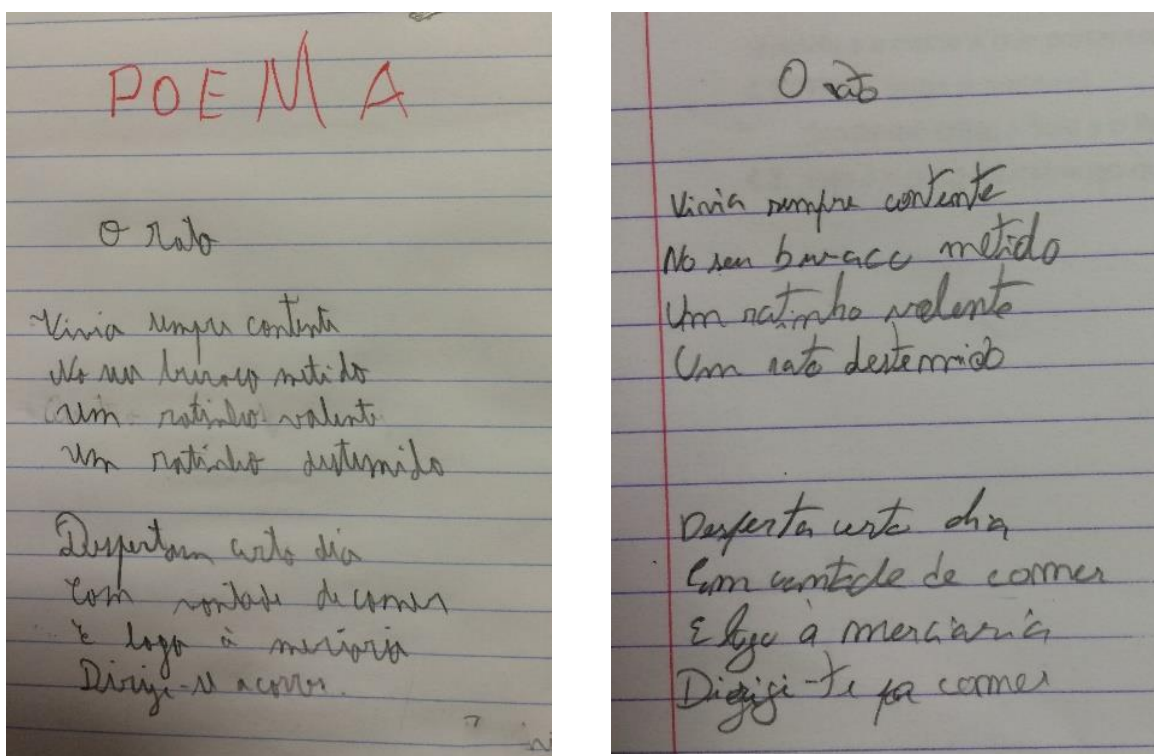 POEMA
O rato
Vivia sempre contente
No seu buraco metido
Um ratinho valente
Um ratinho destemido
Despertam certo dia
Com vontade de comer
E logo à merciaria
Dirige-se a correr.
O rato
Vivia sempre contente
No seu buraco metido
Um ratinho valente
Um rato destemido
Desperta certo dia
Com vontade de comer
E logo à merciaria
Dirigi-te pa comer